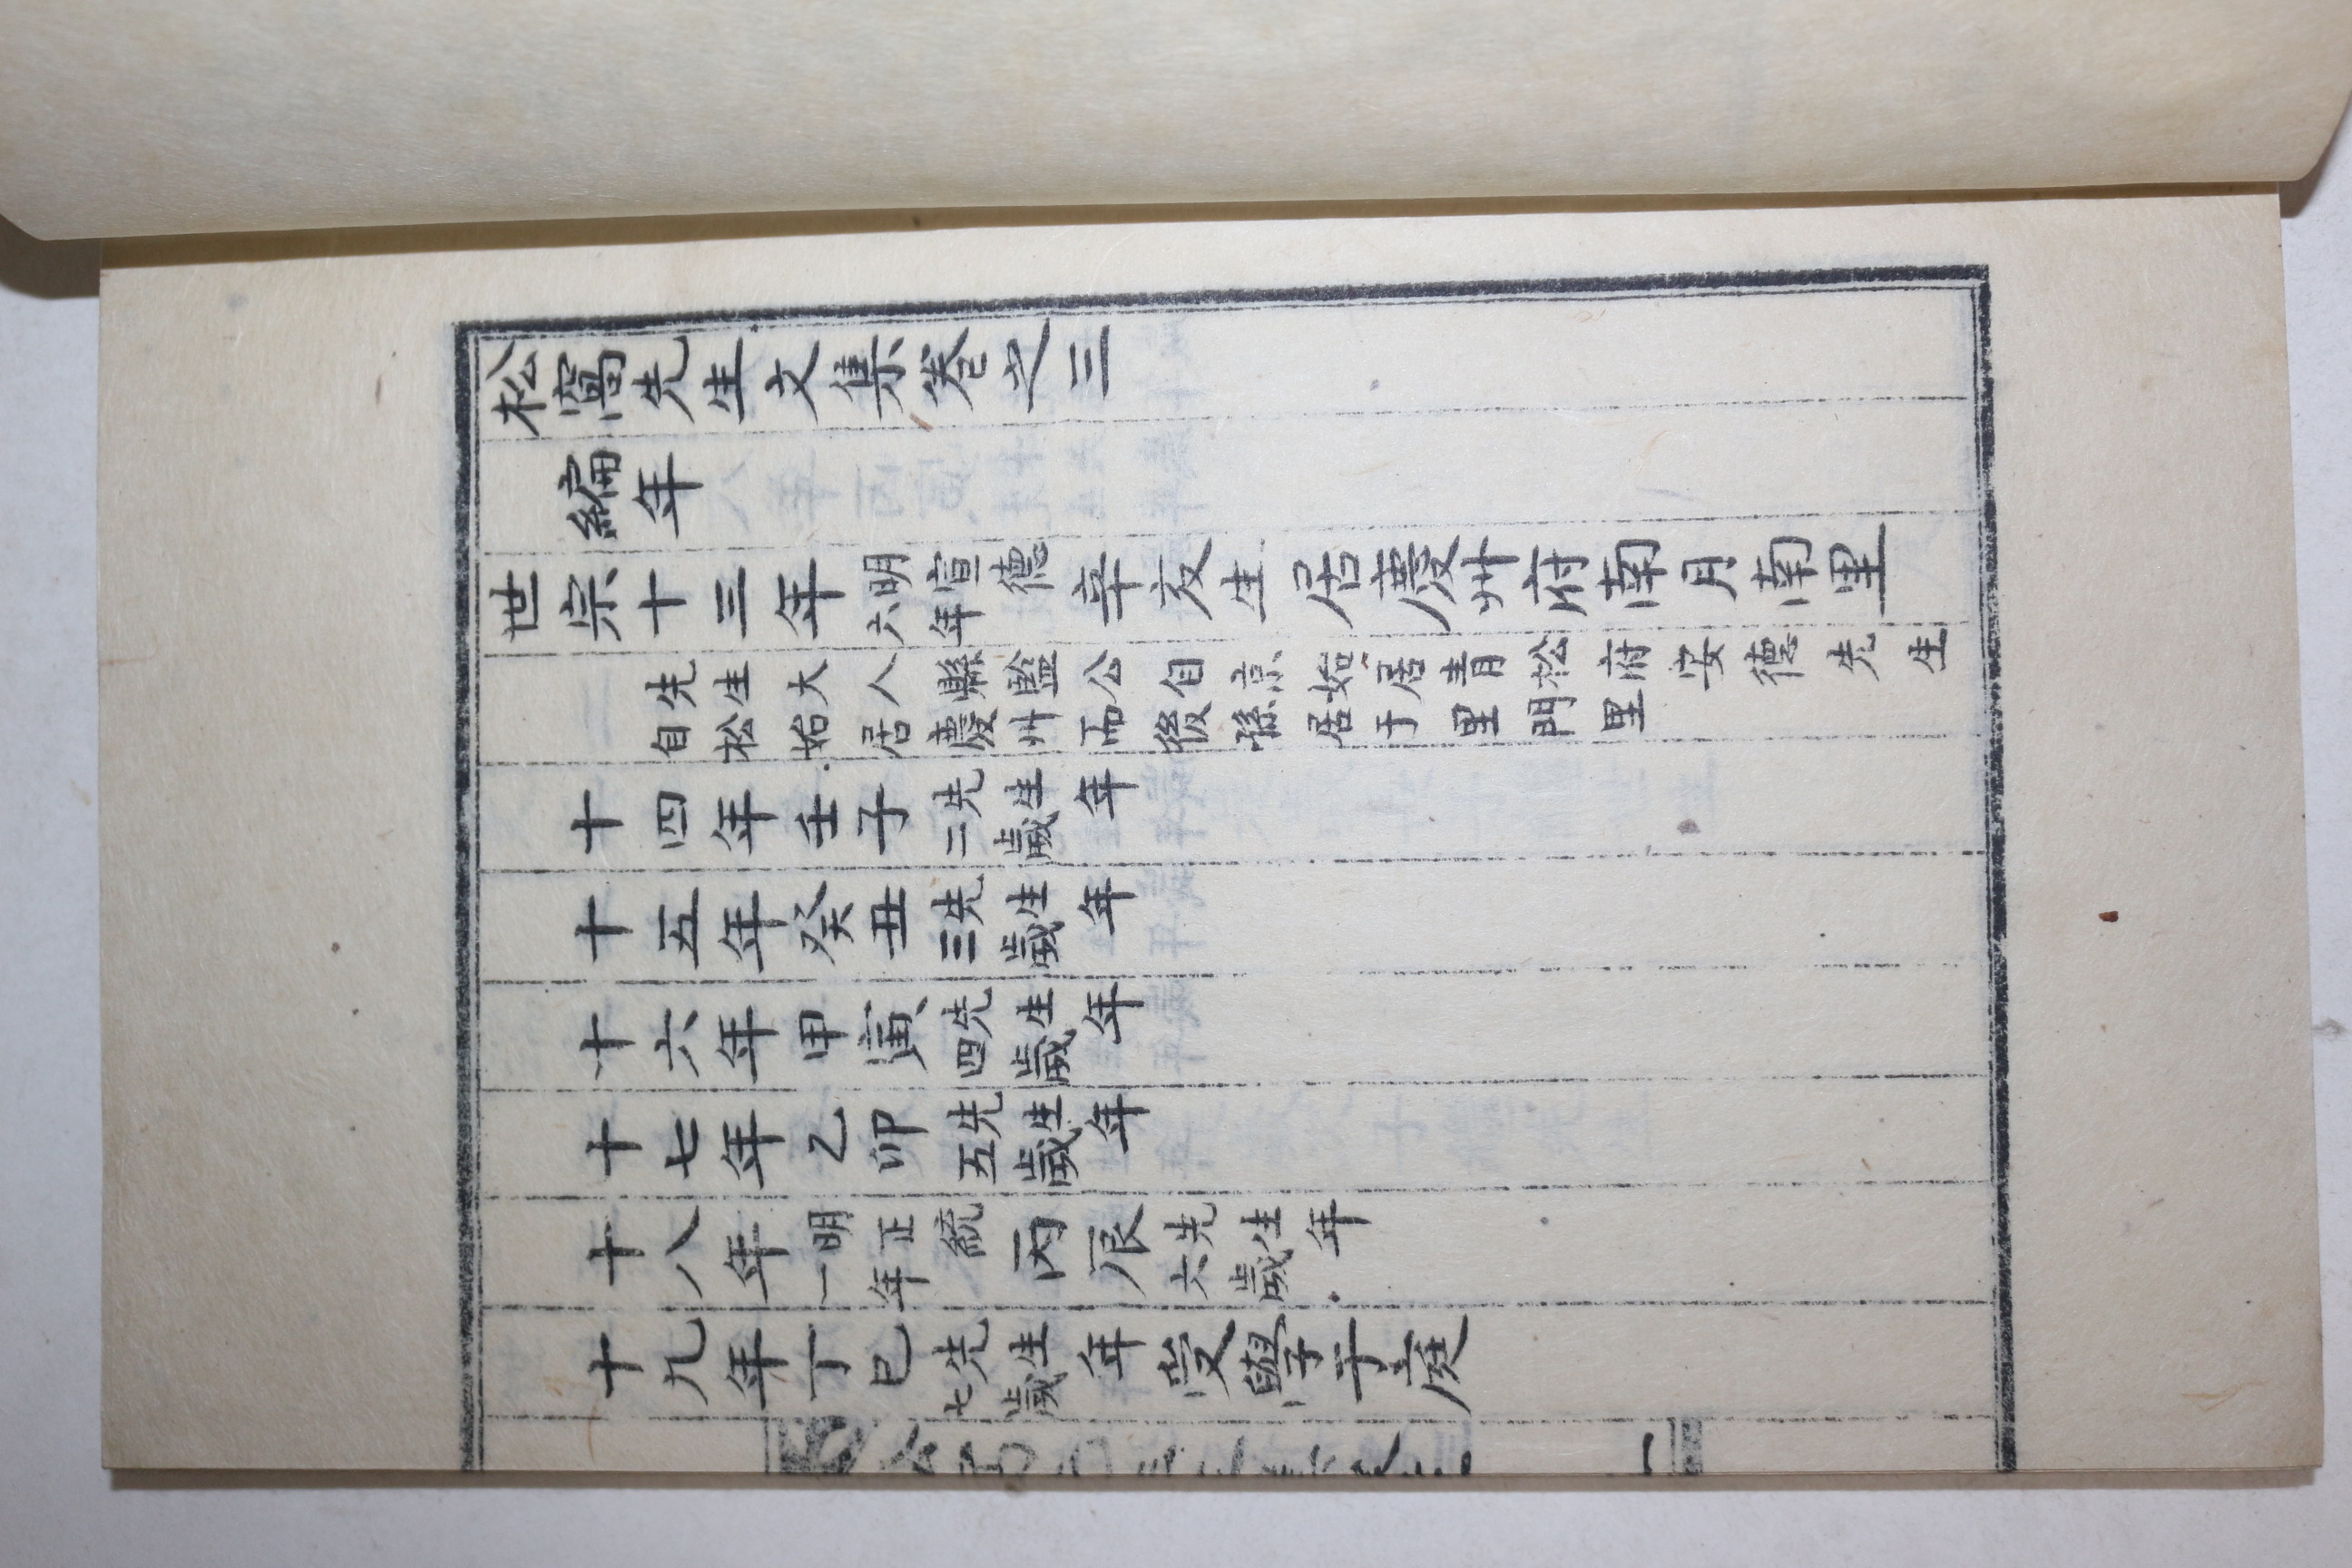 松窩先生文集卷之三
編年
世宗十三年明宣德六年辛亥生居慶州府南月南里
先生大人縣監公自京始居青松府安德先生
自松始居慶州而後孫居于里門里
十四年壬子先生年二歲
十五年癸丑先生年三歲
十六年甲寅先生年四歲
十七年乙卯先生年五歲
十八年明正統一年丙辰先生年六歲
十九年丁巳先生年七歲受學于庭